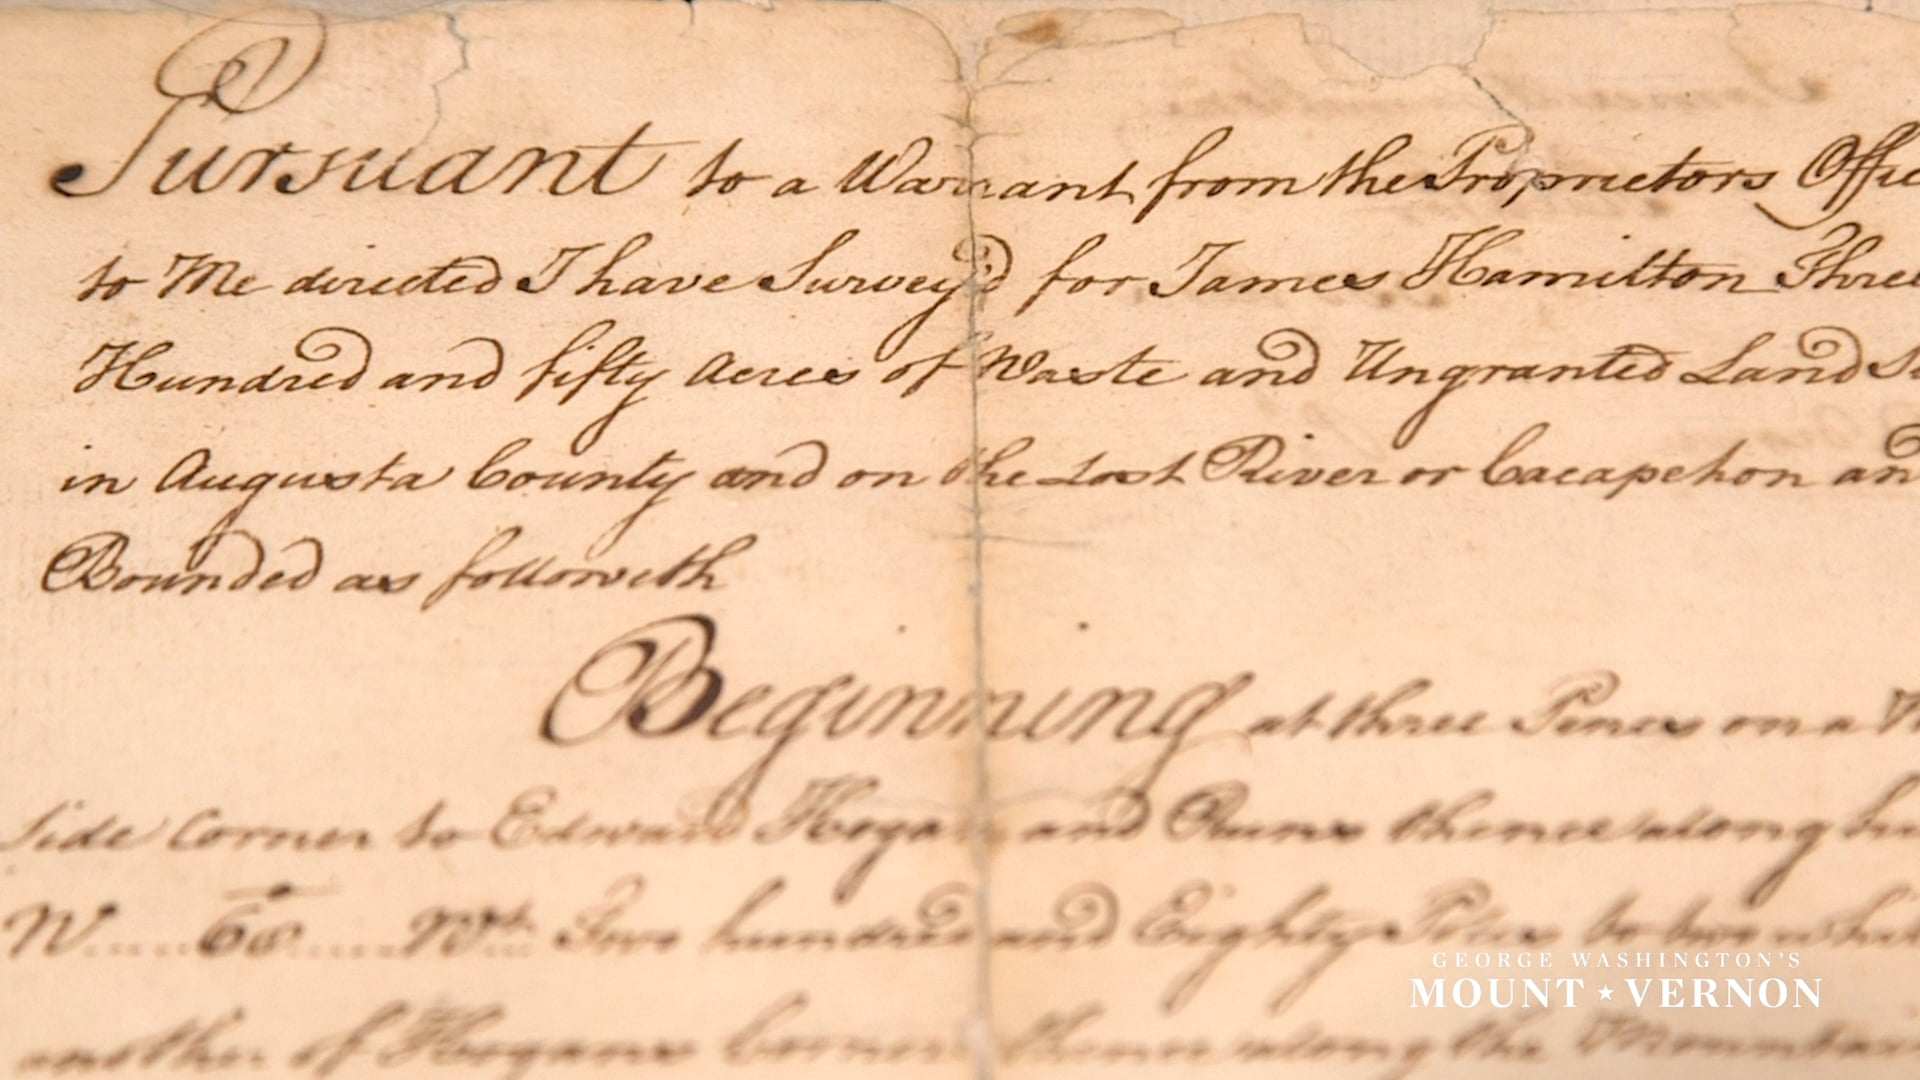 Pursuant to a Warrant from the Proprietors Offic
to Me directed I have Survey'd for James Hamilton Three
Hundred and fifty Acres of Waste and Ungranted Land
in Augusta County and on the Lost River or Cacapehon an
Bounded as followeth
Beginning at three Pines on a
Side Corner to Edward Hogan and Runs thence along
N 60 Wt. Two hundred and Eighty Poles to two whit
another of Hogans Corner thence along the Mountai
GEORGE WASHINGTON'S
MOUNT ★ VERNON